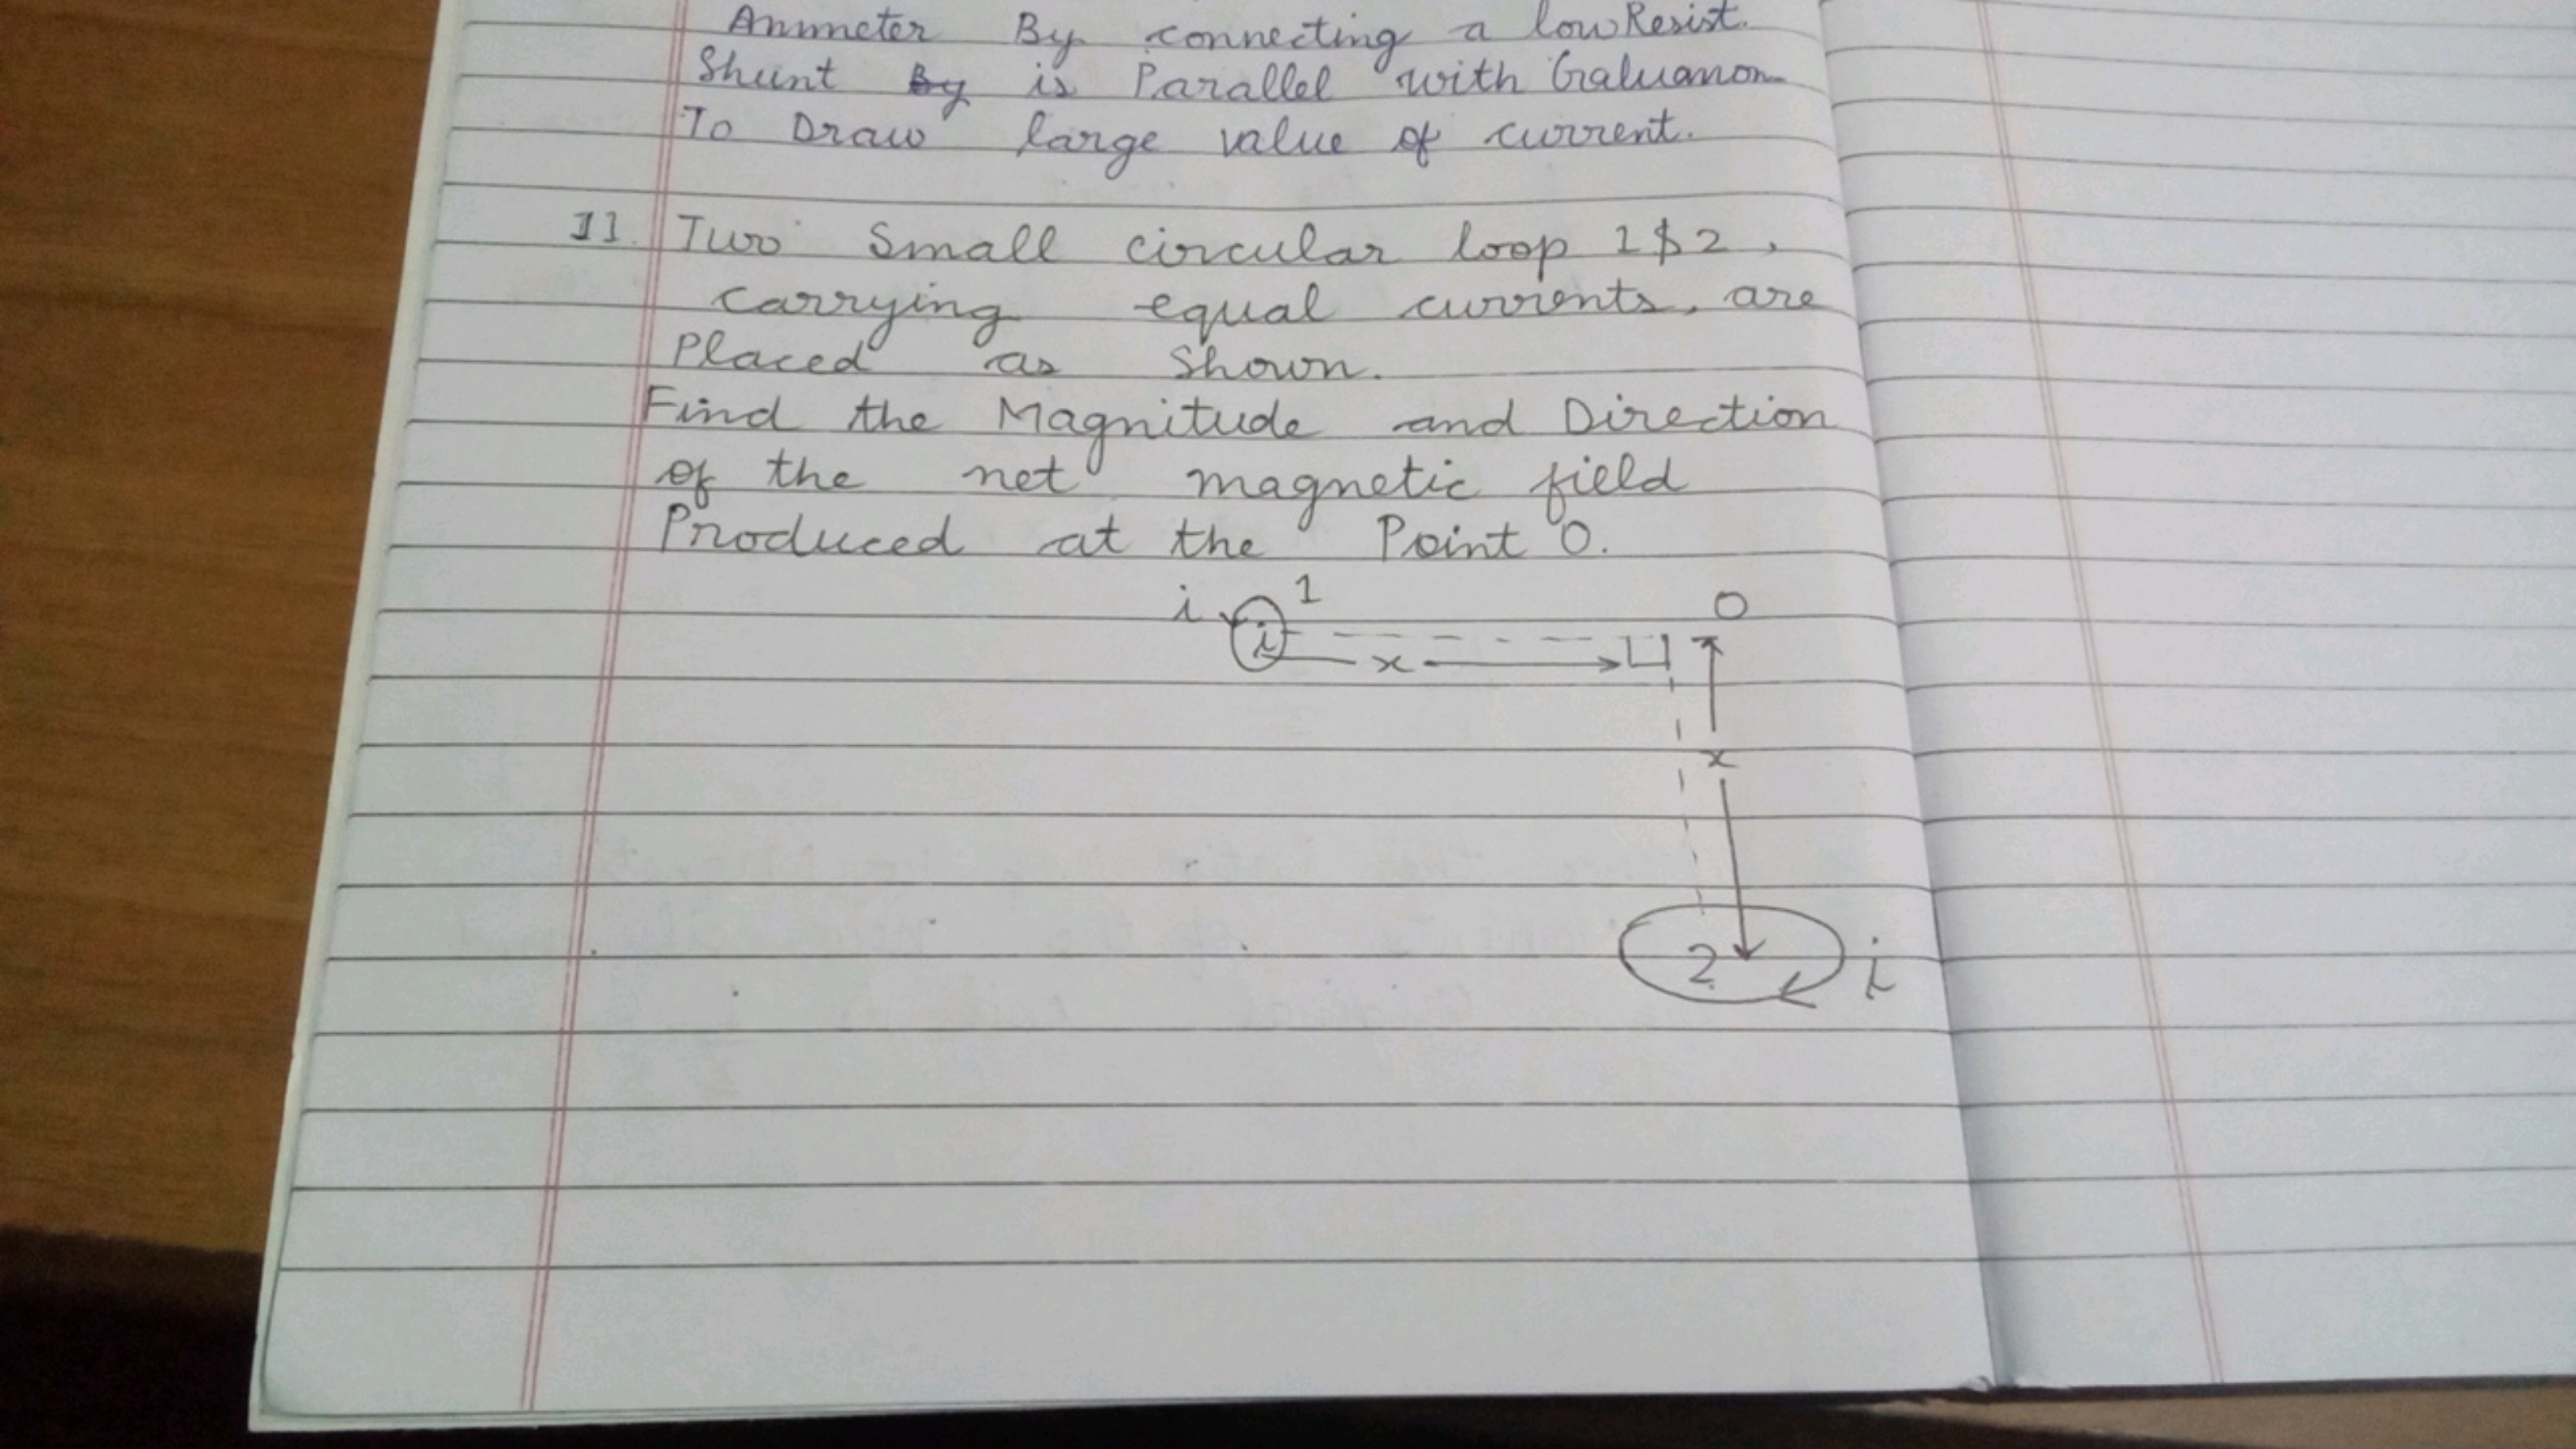 Ammeter By connecting a low Resist.
Shunt By is Parallel with Galvanom
To Draw large value of current.
11. Two Small circular loop 1 $ 2,
carrying equal currents, are
Placed as Shown.
Find the Magnitude and Direction
of the net magnetic field
Produced at the Point O.
i 1 O
i
x
x
2 i